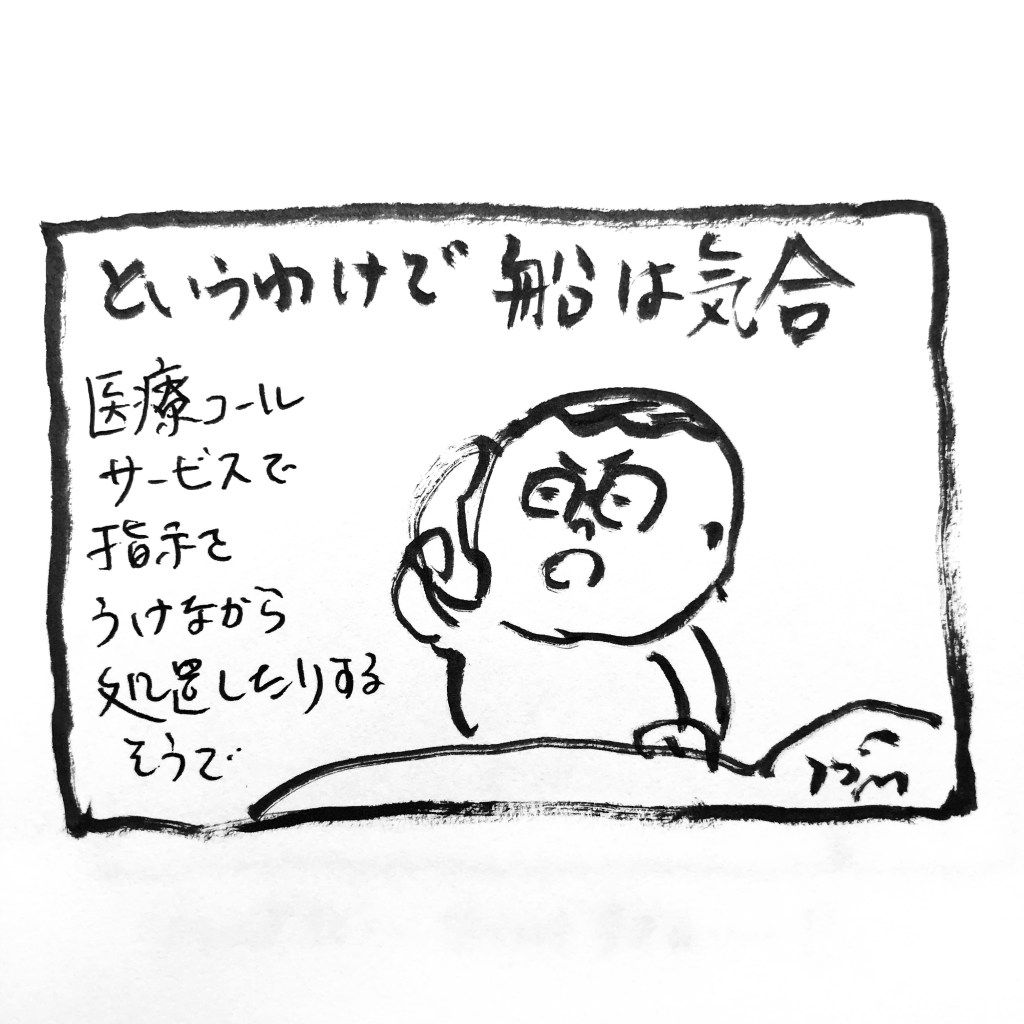 というわけで 船は気合
医療コール
サービスで
指示を
うけながら
処置したりする
そうで